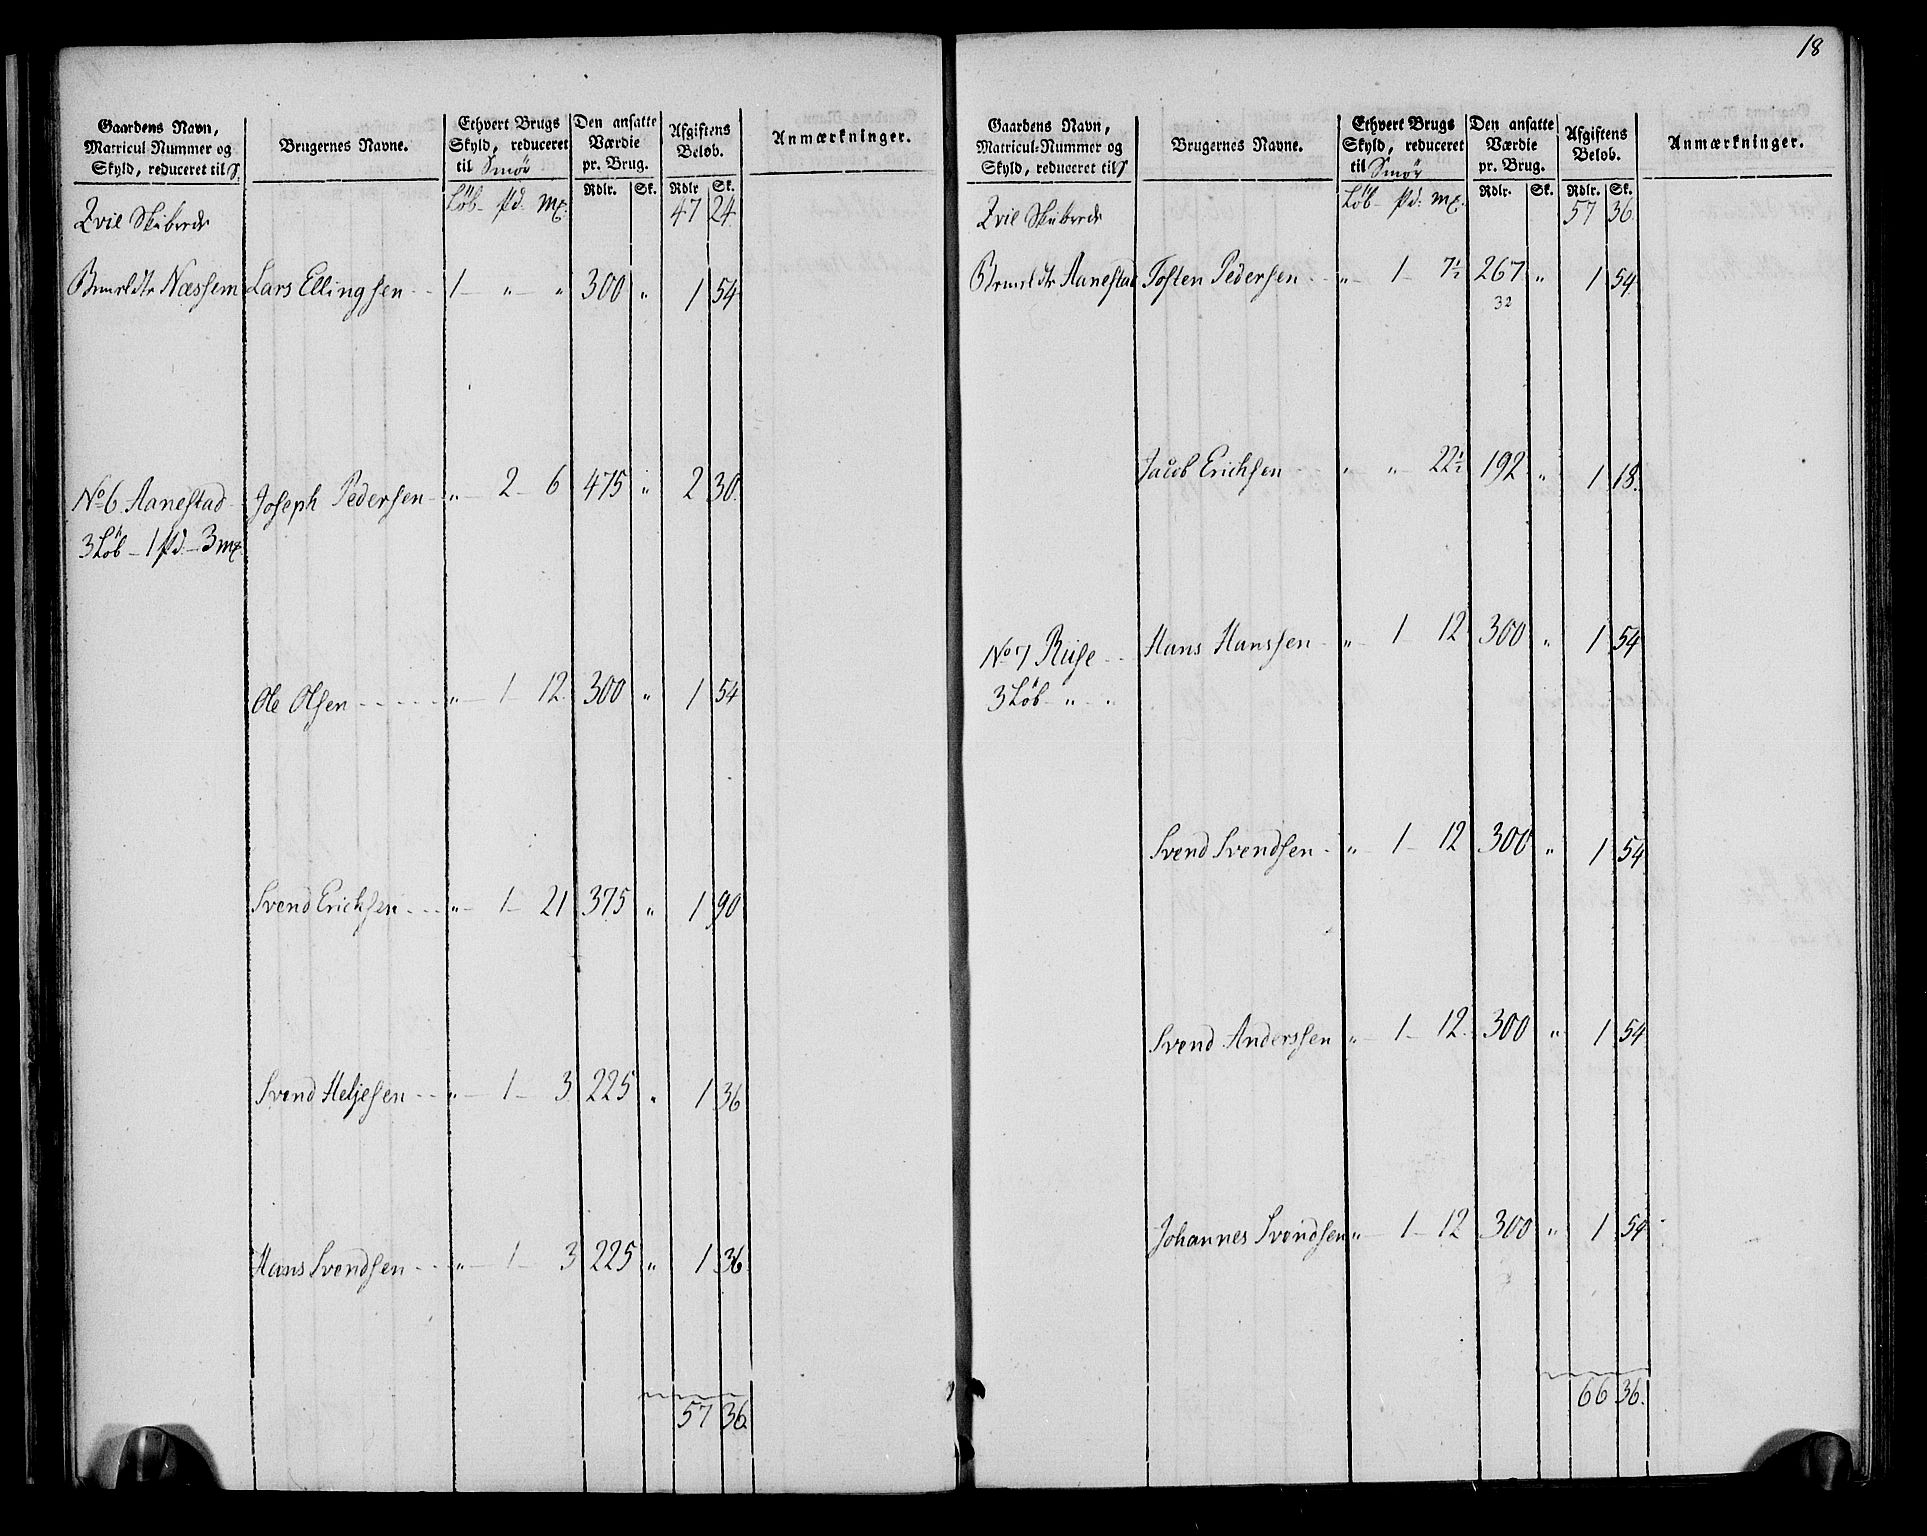 Gaardens Navn,
Matricul-Nummer og
Skyld, reduceret til S:
Brugernes Navne.
Ethvert Brugs
Skyld, reduceret
til Smör
Den ansatte
Værdie
pr. Brug.
Afgiftens
Beløb.
Anmærkninger.
Löb - pd. mk. Rdlr. Sk. Rdlr Sk.
Qvie Skibrede 47 24.
Næssem Lars Ellingsen - - 1 - " - " 300 " 1 54
No 6 Aanestad Joseph Pedersen - " - 2 - 6 475 " 2 30.
3 Löb - 1 pd - 3 mk
Ole Olsen - - - - - " - 1 - 12. 300 " 1 54
Svend Erichsen - - - " - 1 - 21 375 " 1 90
Svend Heljesen - - " - 1 - 3 225 " 1 36
Hans Svendsen - - " - 1 - 3 225 " 1 36
57 36.
18
Gaardens Navn,
Matricul-Nummer og
Skyld, reduceret til S
Brugernes Navne.
Ethvert Brugs
Skyld, reduceret
til Smör
Den ansatte
Værdie
pr. Brug.
Afgiftens
Beløb.
Anmærkninger.
Löb - pd. mk. Rdlr. Sk. Rdlr. Sk.
Qvie Skibrede 57 36
Aanestad Tosten Pedersen - - " - 1 - 7½ 267 " 1 54
32
Jacob Erichsen " - " - 22½ 192 " 1 18.
No 7 Riise - - Hans Hanssen - " - 1 - 12 300 " 1 54
3 Löb - " - "
Svend Svendsen - " - 1 - 12 300 " 1 54
Svend Anderssen " - 1 - 12. 300 " 1 54
Johannes Svendsen " - 1 - 12 300 " 1 54
66 36.